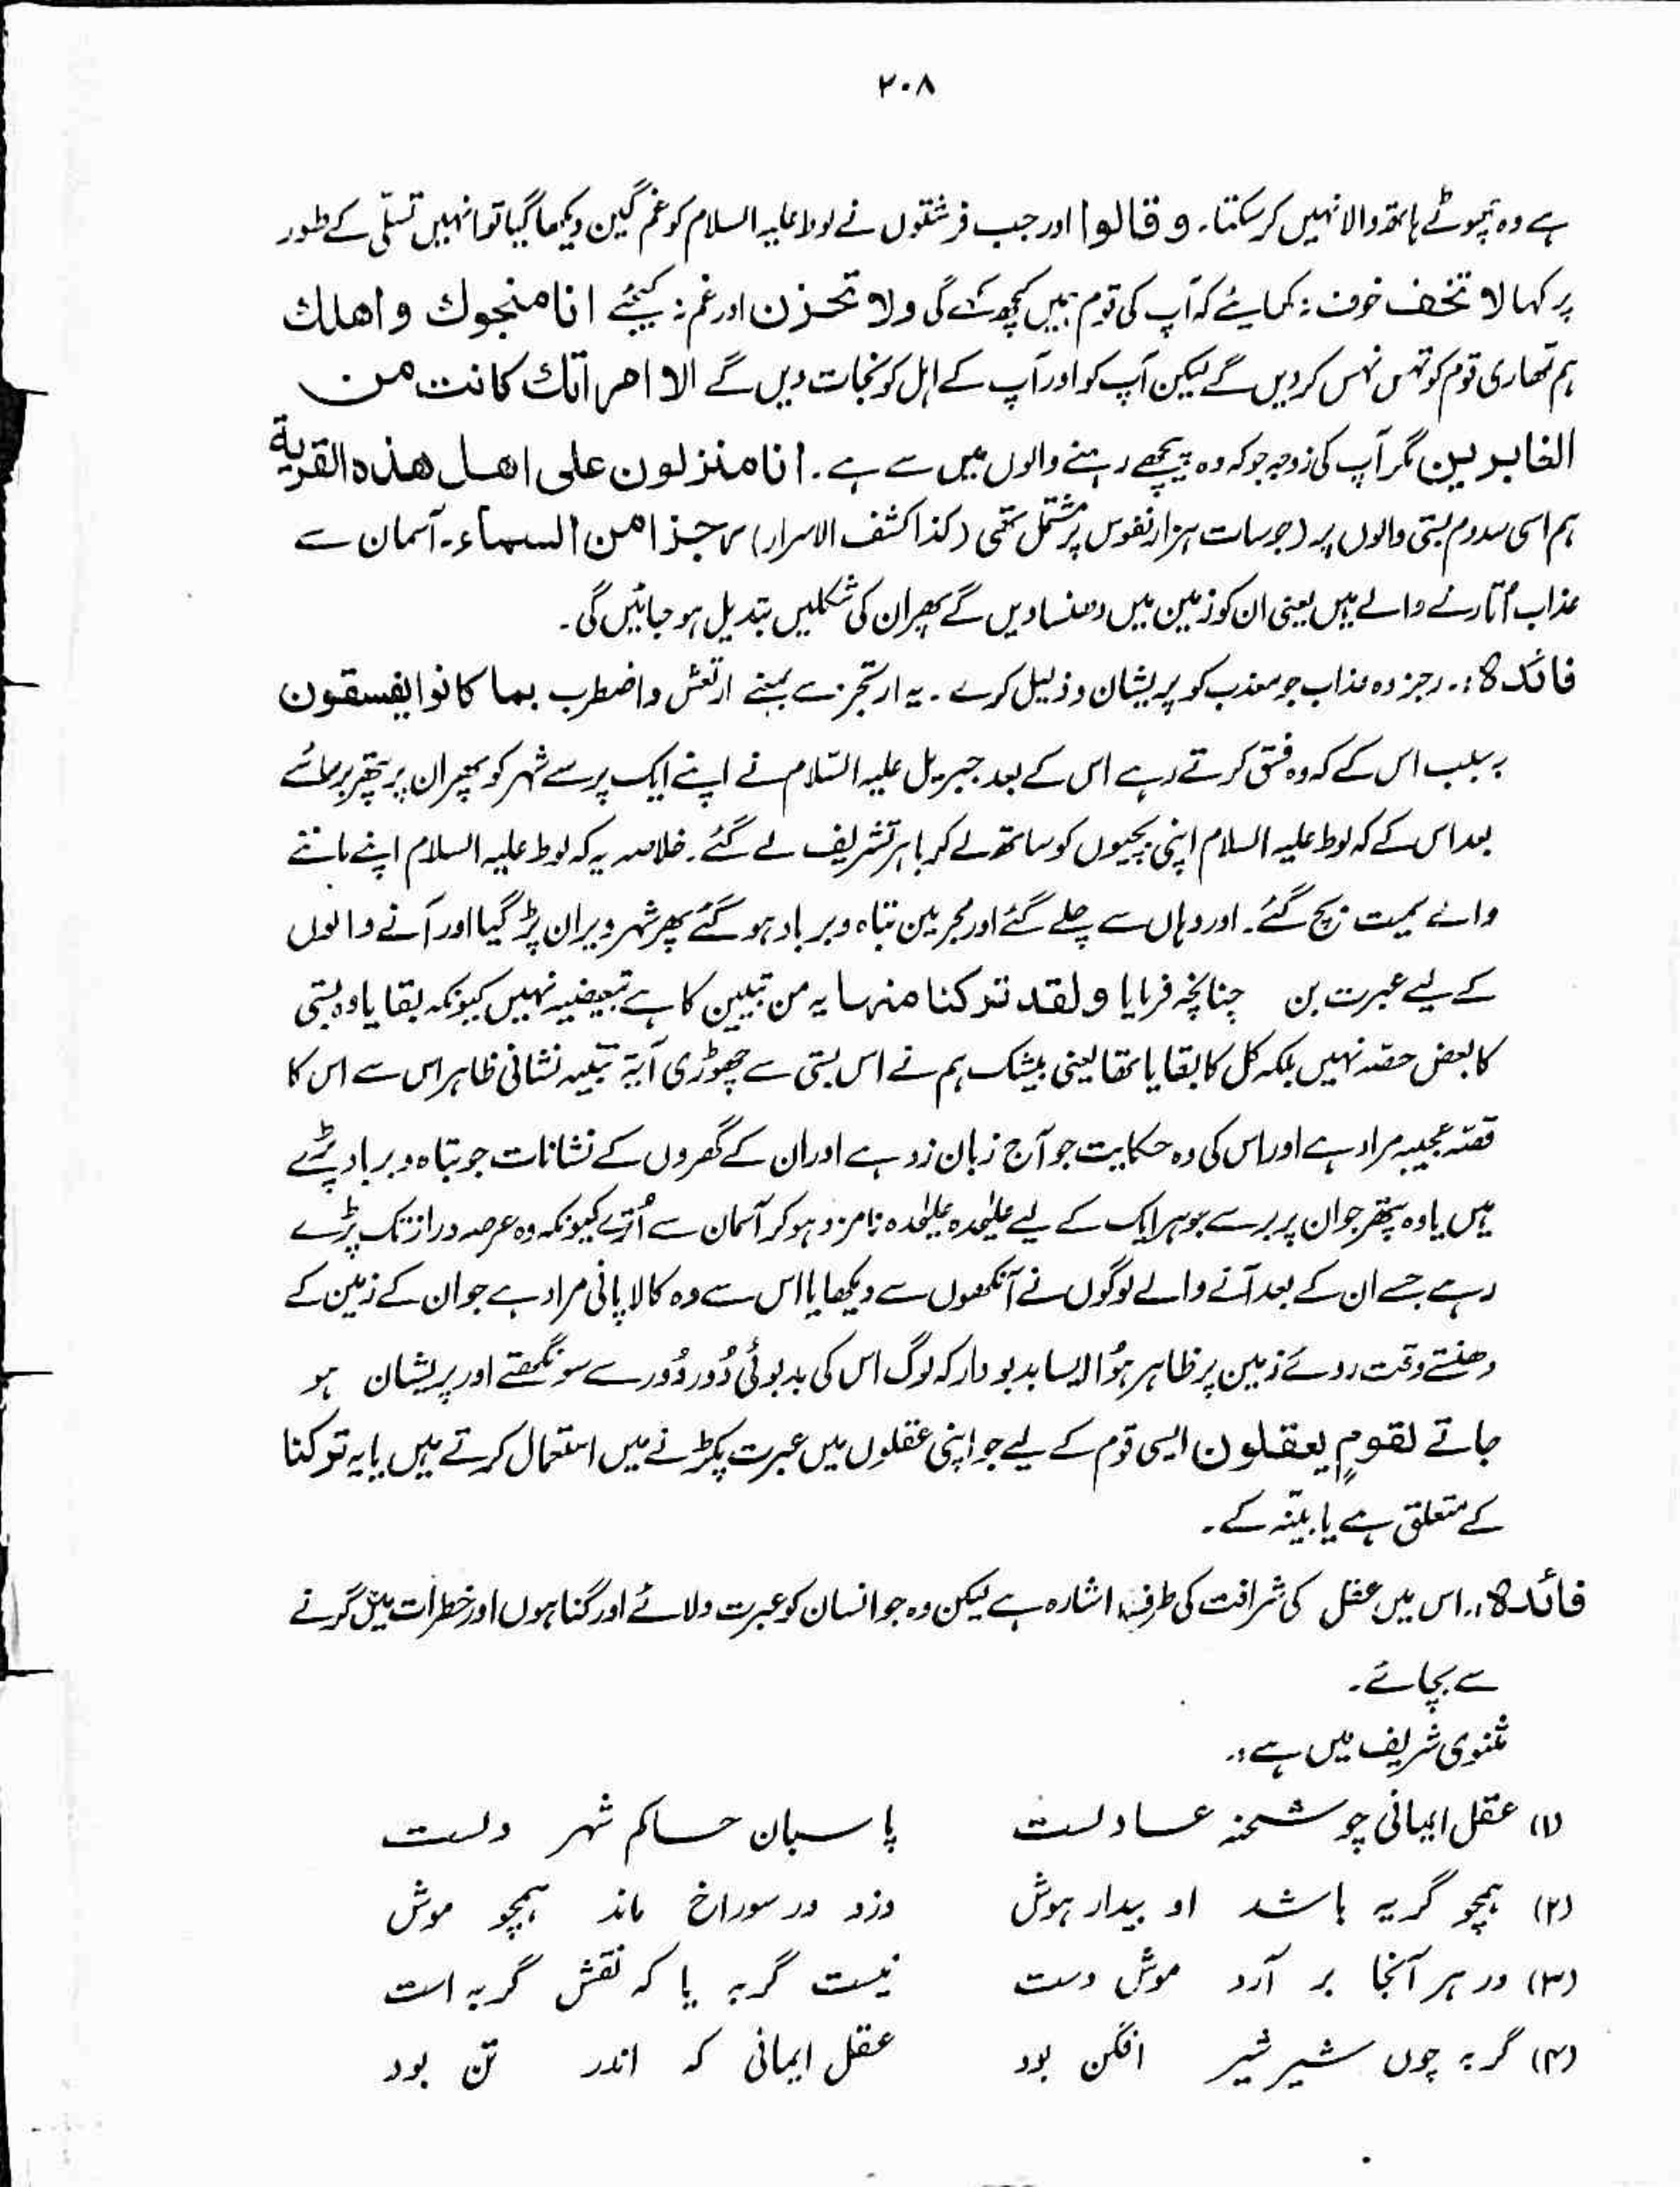 ۲۰۸
ہے وہ چھوٹے ہاتھ والا نہیں کر سکتا۔ و قالوا اور جب فرشتوں نے لوط علیہ السلام کو غم گین دیکھا گیا تو انہیں تسلّی کے طور
پر کہا لا تخف خوف نہ کھایئے کہ آپ کی قوم ہمیں کچھ کہے گی ولا تحزن اور غم نہ کیجئے انا منجوك و اهلك
ہم تمھاری قوم کو تہس نہس کر دیں گے لیکن آپ کو اور آپ کے اہل کو نجات دیں گے الا امراتك كانت من
الغابرين مگر آپ کی زوجہ جو کہ وہ پیچھے رہنے والوں میں سے ہے۔ انا منزلون على اهل هذه القرية
ہم اسی سدوم بستی والوں پر (جو سات ہزار نفوس پر مشتمل تھی (کذا کشف الاسرار) رجزا من السماء۔ آسمان سے
عذاب اُتارنے والے ہیں یعنی ان کو زمین میں دھنسا دیں گے پھر ان کی شکلیں تبدیل ہو جائیں گی۔
فائدہ:۔ رجز وہ عذاب جو معذب کو پریشان و ذلیل کرے۔ یہ ارتجز سے بمعنے ارتعش و اضطرب بما كانوا يفسقون
بہ سبب اس کے کہ وہ فسق کرتے رہے اس کے بعد جبریل علیہ السّلام نے اپنے ایک پر سے شہر کو پھر ان پر پتھر برسائے
بعد اس کے کہ لوط علیہ السلام اپنی بچیوں کو ساتھ لے کر باہر تشریف لے گئے۔ خلاصہ یہ کہ لوط علیہ السلام اپنے ماننے
والے سمیت بچ گئے۔ اور وہاں سے چلے گئے اور مجرمین تباہ و برباد ہو گئے پھر شہر ویران پڑ گیا اور آنے والوں
کے لیے عبرت بن چنانچہ فرمایا و لقد تركنا منها یہ من تبیین کا ہے تبعیضیہ نہیں کیونکہ بقایا وہ بستی
کا بعض حصّہ نہیں بلکہ کل کا بقایا تھا یعنی بیشک ہم نے اس بستی سے چھوڑی آیۃ بیّنہ نشانی ظاہر اس سے اس کا
قصّہ عجیبہ مراد ہے اور اس کی وہ حکایت جو آج زبان زد ہے اور ان کے گھروں کے نشانات جو تباہ و برباد پڑے
ہیں یا وہ پتھر جو ان پر برسے جو ہر ایک کے لیے علیٰحدہ علیٰحدہ نامزد ہو کر آسمان سے اُترے کیونکہ وہ عرصہ دراز تک پڑے
رہے جسے ان کے بعد آنے والے لوگوں نے آنکھوں سے دیکھا یا اس سے وہ کالا پانی مراد ہے جو ان کے زمین کے
دھنستے وقت روئے زمین پر ظاہر ہوُا ایسا بدبو دار کہ لوگ اس کی بدبوئی دُور دُور سے سونگھتے اور پریشان ہو
جاتے لقومٍ يعقلون ایسی قوم کے لیے جو اپنی عقلوں میں عبرت پکڑنے میں استعمال کرتے ہیں یا یہ ترکنا
کے متعلق ہے یا بیّنہ کے۔
فائدہ:۔ اس میں عقل کی شرافت کی طرف اشارہ ہے لیکن وہ جو انسان کو عبرت دلائے اور گناہوں اور خطرات میں گرنے
سے بچائے۔
مثنوی شریف میں ہے:۔
(۱) عقل ایمانی چو شحنہ عادلست پاسبان حاکم شہر دلست
(۲) ہمچو گربہ باشد او بیدار ہوش دزد در سوراخ ماند ہمچو موش
(۳) در ہر آنجا بر آرد موش دست نیست گربہ یا کہ نقش گربہ است
(۴) گربہ چوں شیر شیر افگن بود عقل ایمانی کہ اندر تن بود